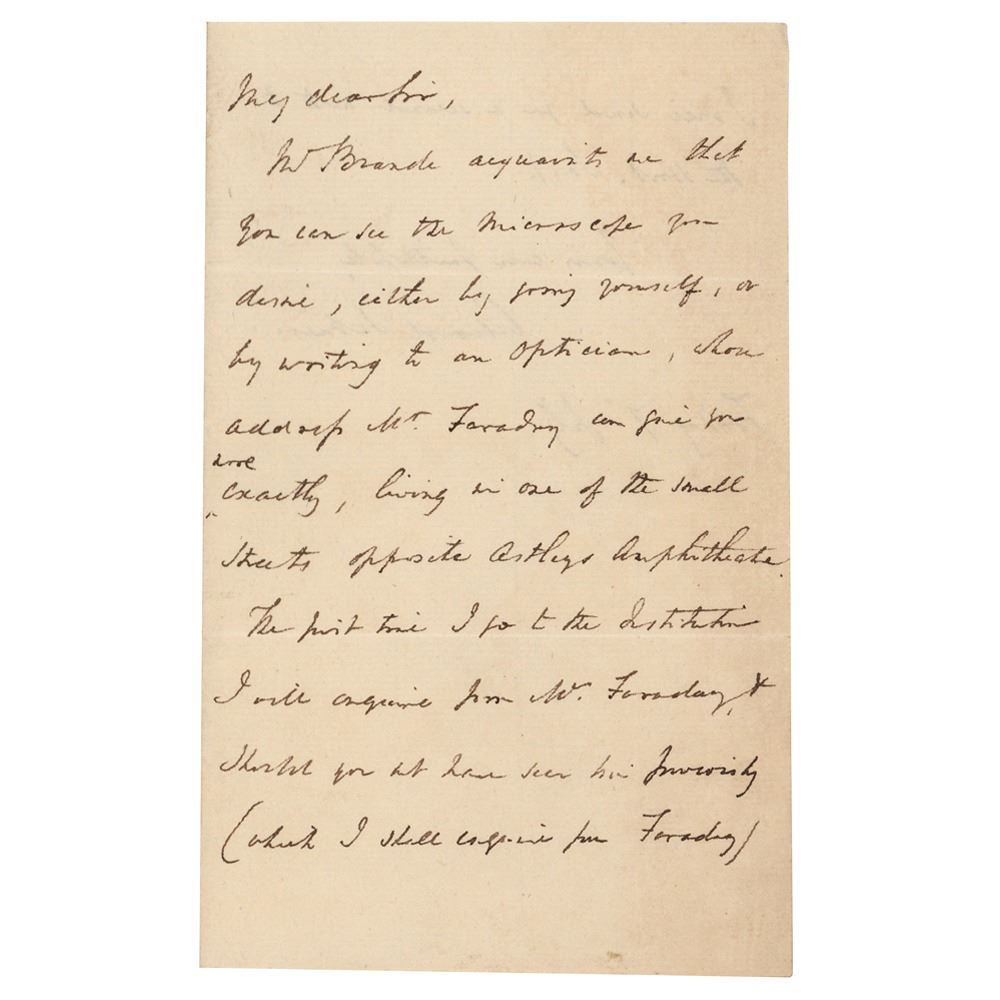 My dear Sir,
Mr Brande acquaints me that
you can see the Microscope you
desire, either by going yourself, or
by writing to an Optician, whose
address Mr. Faraday can give you
more
exactly, living in one of the small
Streets opposite Astleys Amphitheatre.
The first time I go to the Institution
I will enquire from Mr. Faraday, &
should you not have seen him previously
(which I shall enquire from Faraday)